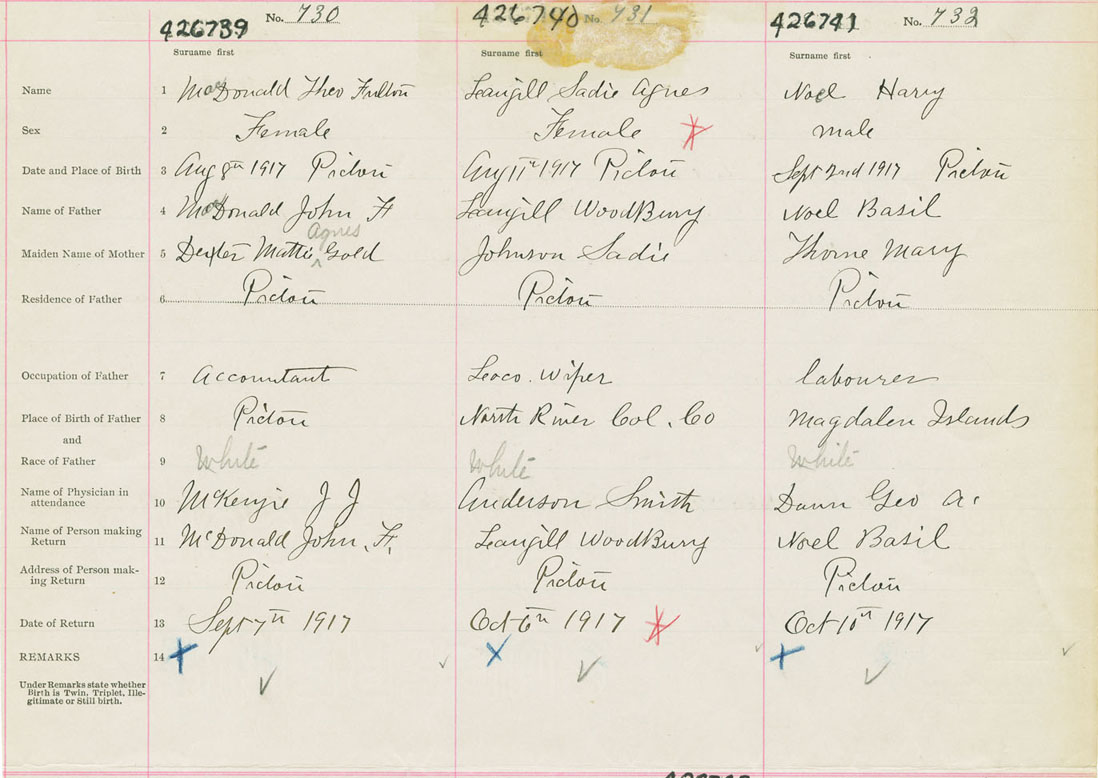 426739 No. 730 426740 No. 731 426741 No. 732
Surname first Surname first
Name 1 MacDonald Theo Fulton Langill Sadie Agnes Noel Harry
Sex 2 Female Female male
Date and Place of Birth 3 Aug 8th 1917 Pictou Aug 11th 1917 Pictou Sept 2nd 1917 Pictou
Name of Father 4 MacDonald John F Langill WoodBurry Noel Basil
Agnes
Maiden Name of Mother 5 Dexter Mattie Gold Johnson Sadie Thorne Mary
Residence of Father 6 Pictou Pictou Pictou
Occupation of Father 7 Accountant Loco. Wiper labourer
Place of Birth of Father 8 Pictou North River Col. Co Magdalen Islands
and
Race of Father 9 White White White
Name of Physician in
attendance 10 McKenzie J J Anderson Smith Dunn Geo A.
Name of Person making
Return 11 McDonald John. F. Langill WoodBurry Noel Basil
Address of Person mak-
ing Return 12 Pictou Pictou Pictou
Date of Return 13 Sept 7th 1917 Oct 6th 1917 Oct 10th 1917
REMARKS 14
Under Remarks state whether
Birth is Twin, Triplet, Ille-
gitimate or Still birth.